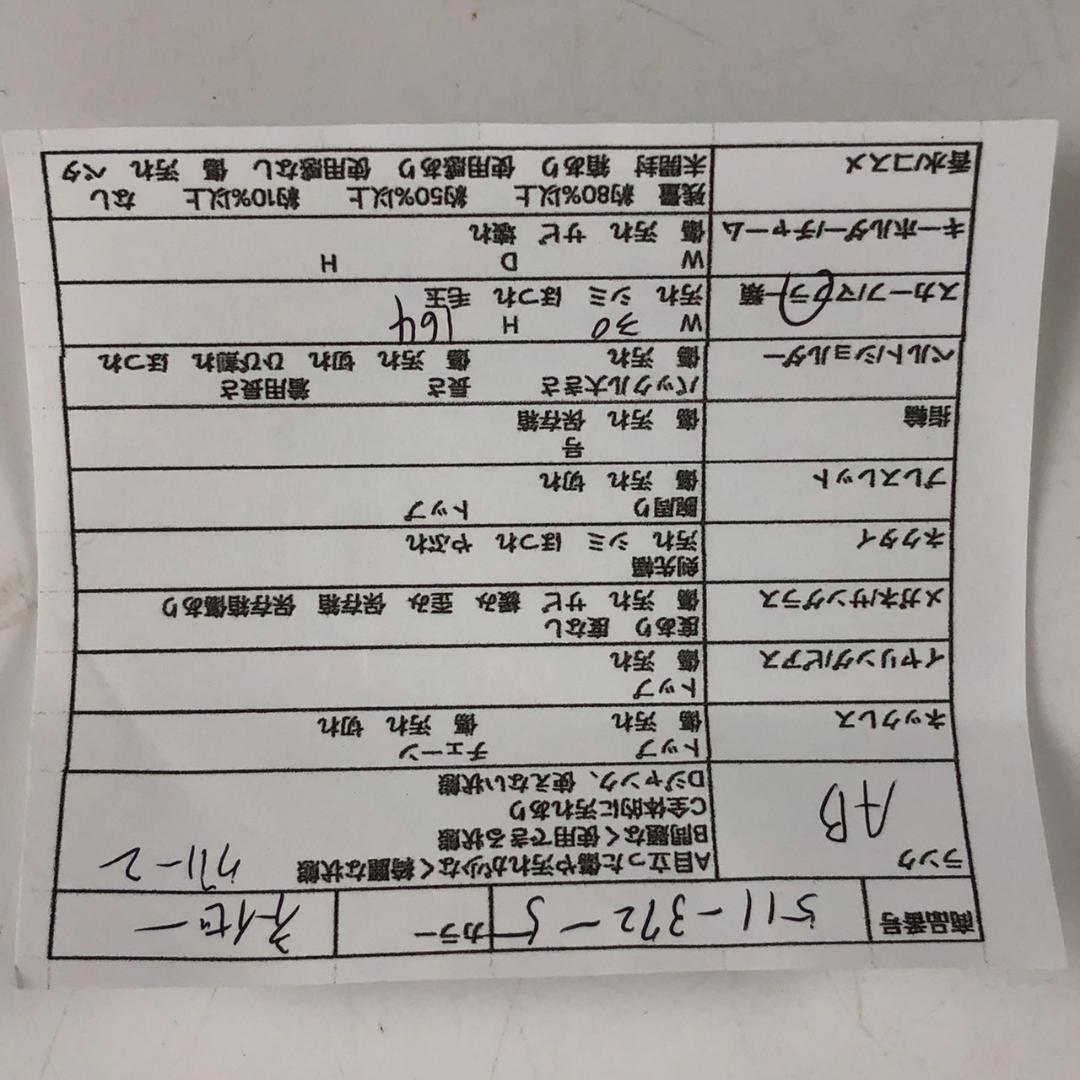 商品番号 511-372-5 カラー ネイビー
ランク AB
A目立った傷や汚れが少なく綺麗な状態
B問題なく使用できる状態
C全体的に汚れあり
Dジャンク、使えない状態
ネックレス
トップ チェーン
傷 汚れ 傷 汚れ 切れ
イヤリング/ピアス
トップ
傷 汚れ
メガネ/サングラス
度あり 度なし
傷 汚れ サビ 緩み 歪み 保存箱 保存箱傷あり
ネクタイ
剣先幅
汚れ シミ ほつれ やぶれ
ブレスレット
腕周り トップ
傷 汚れ 切れ
指輪
号
傷 汚れ 保存箱
ベルト/ショルダー
バックル大きさ 長さ 着用長さ
傷 汚れ 傷 汚れ 切れ ひび割れ ほつれ
スカーフ/マフラー類
W 30 H 164
汚れ シミ ほつれ 毛玉
キーホルダー/チャーム
W D H
傷 汚れ サビ 壊れ
香水/コスメ
残量 約80%以上 約50%以上 約10%以上 なし
未開封 箱あり 使用感あり 使用感なし 傷 汚れ ベタ